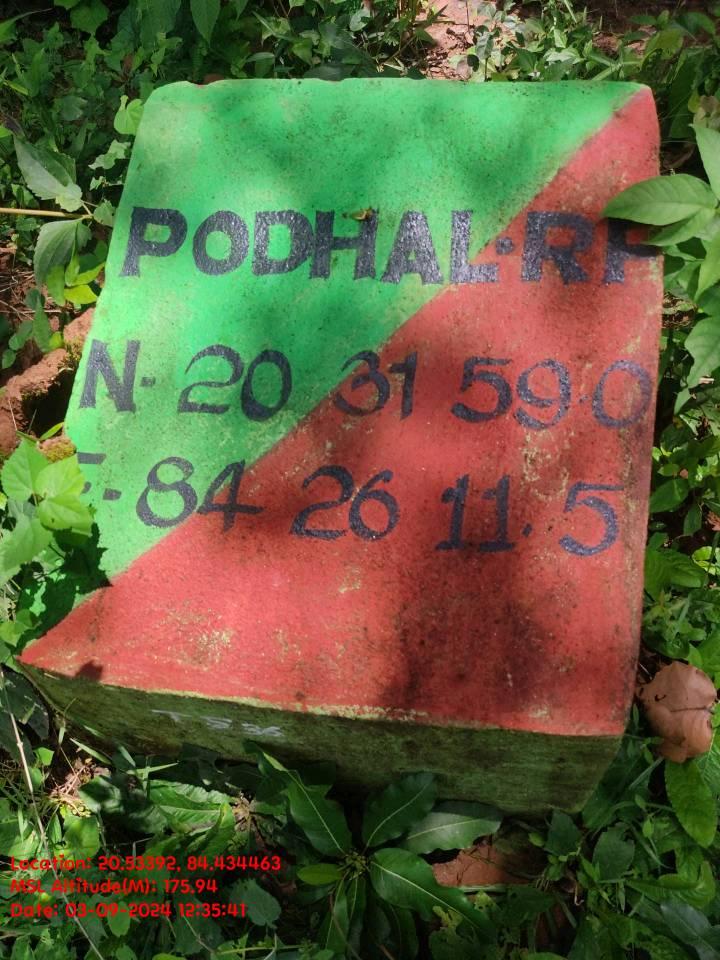 PODHAL·RF
N· 20 31 59·0
E·84 26 11·5
TS 36
Location: 20.53392, 84.434463
MSL Altitude(M): 175.94
Date: 03-09-2024 12:35:41